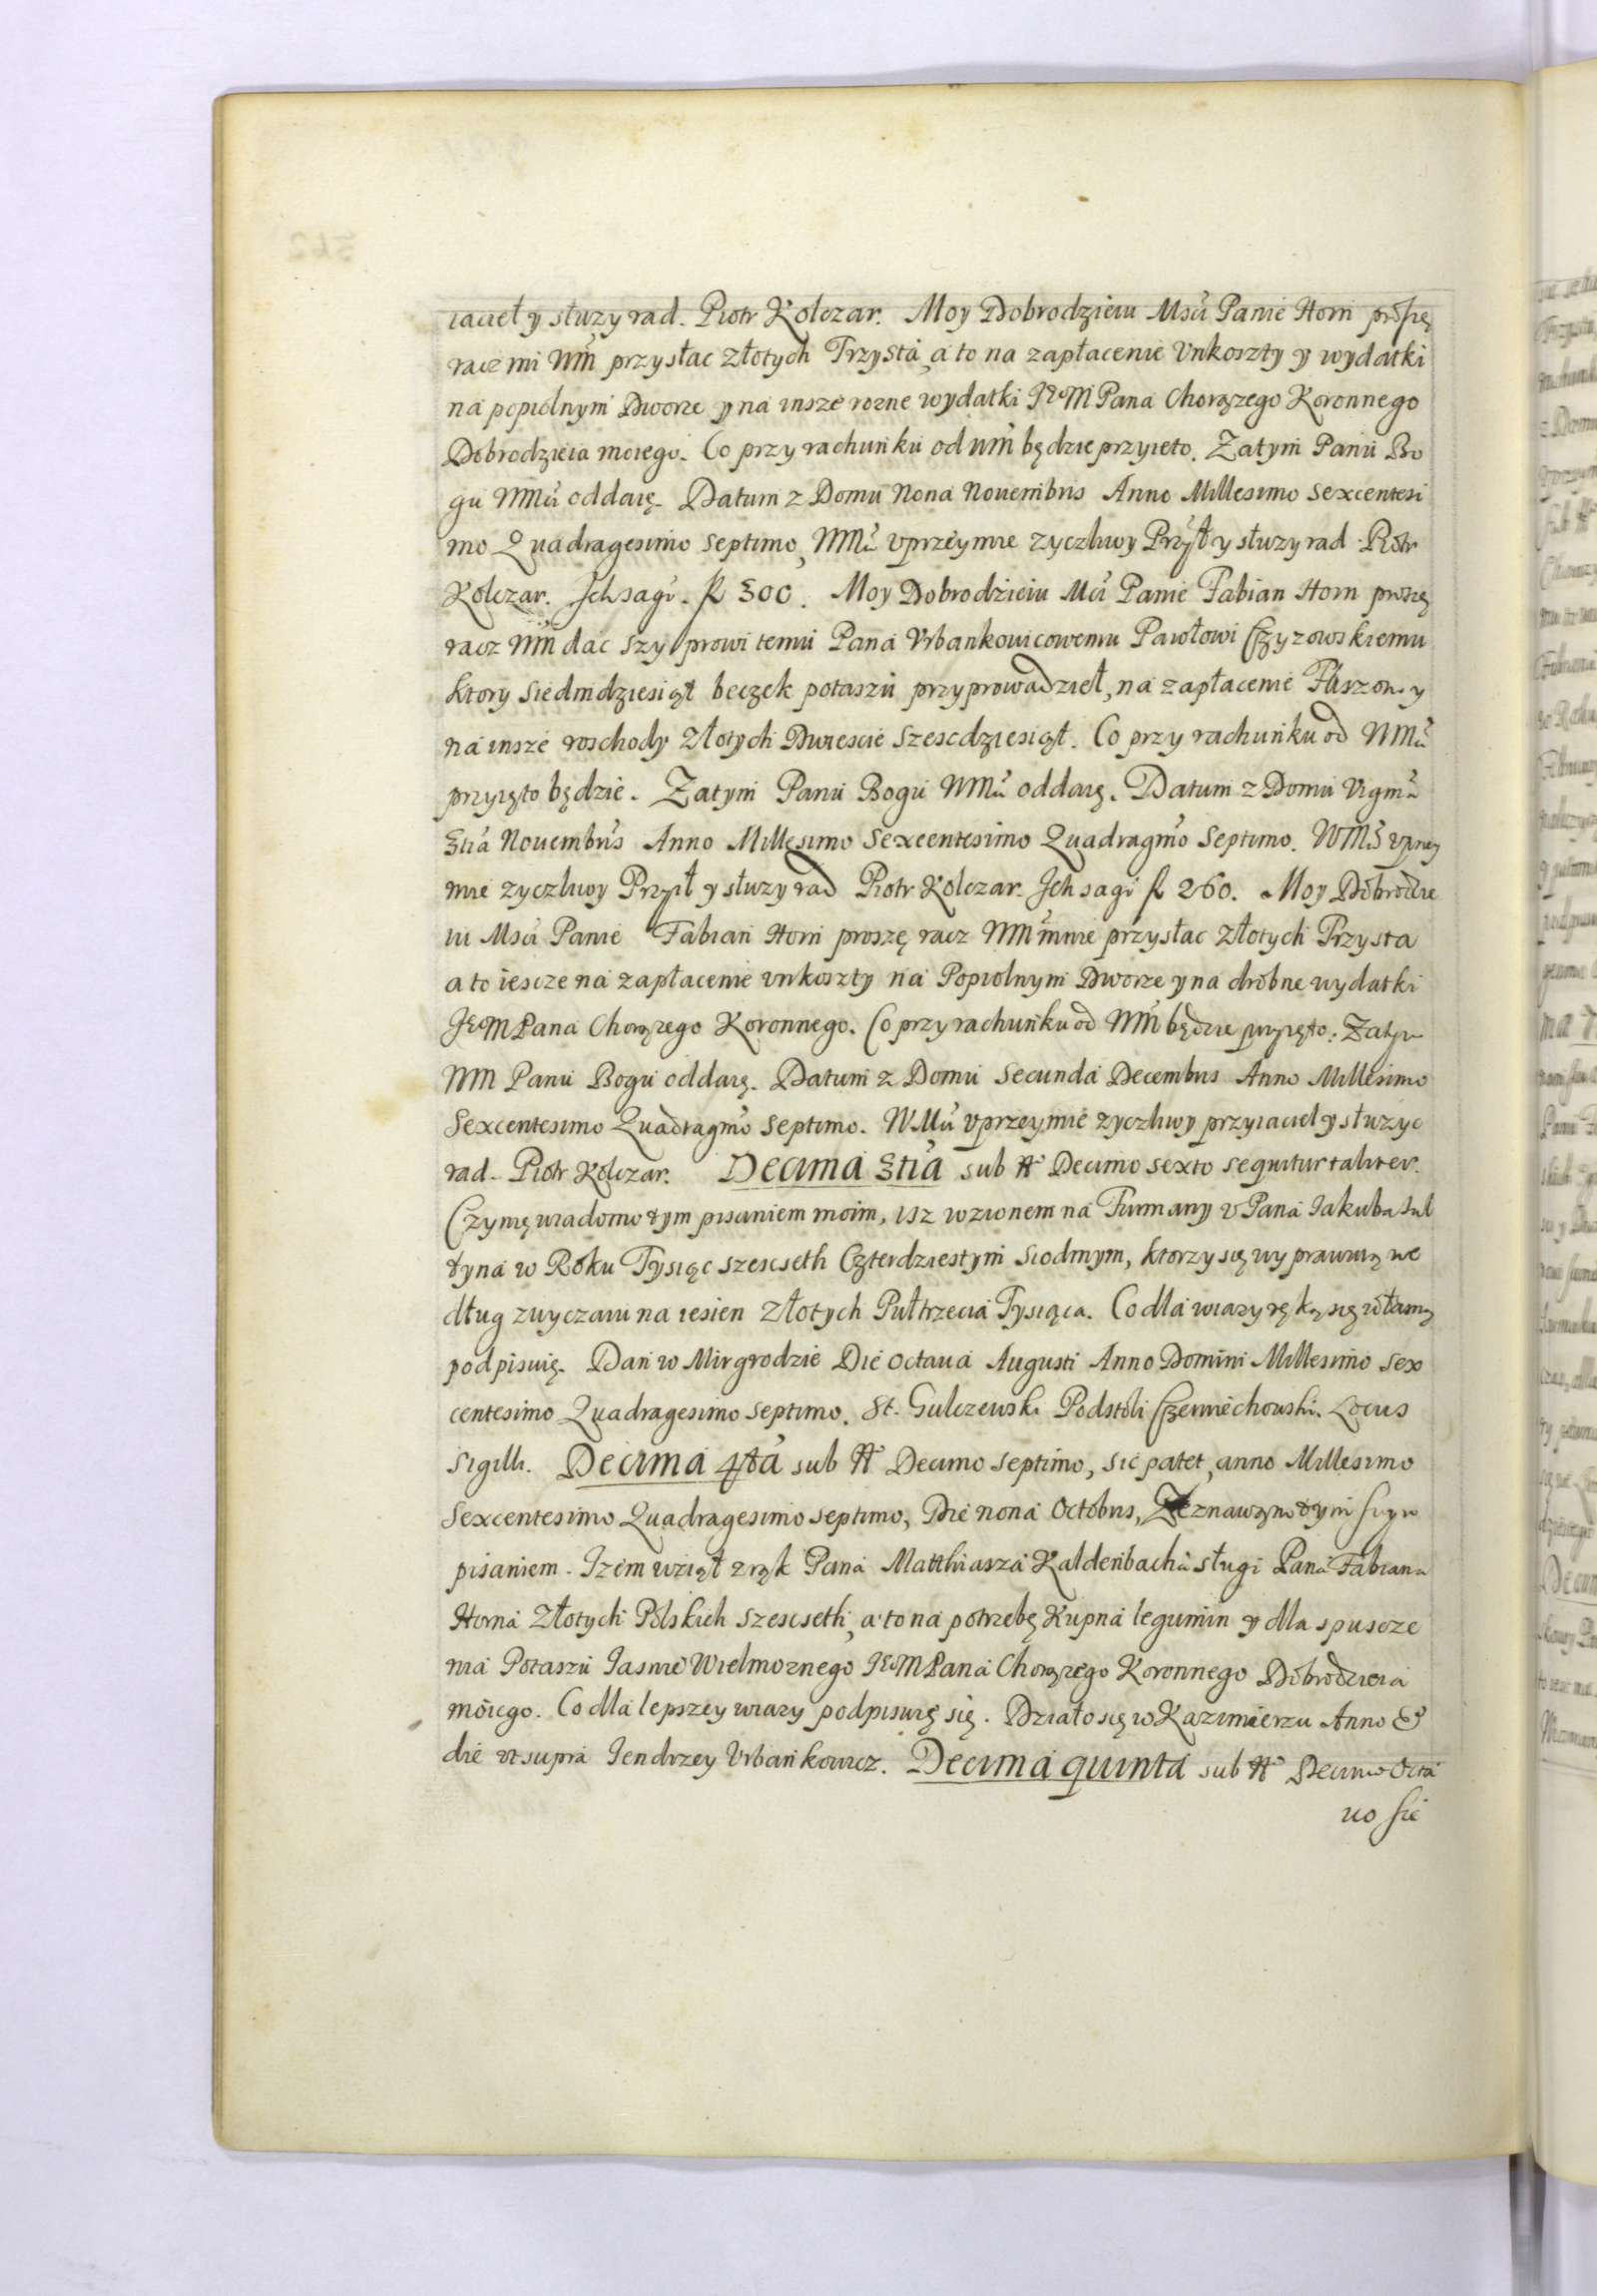 iaciel y słuzy rad. Piotr Kolczar. Moy Dobrodzieiu Msci Panie Horn proszę
racz mi WM przysłac złotych Trzysta, a to na zapłacenie Vnkoszty y wydatki
na popiolnym Dworze y na insze rozne wydatki JEoM Pana Chorązego Koronnego
Dobrodzieia moiego. Co przy rachunku od WM będzie przyieto. Zatym Panu Bo
gu WMci oddaię. Datum z Domu Nona Nouembris Anno Millesimo Sexcentesi
mo Quadragesimo Septimo, WMci vprzeymie zyczliwy Przył y słuzy rad Piotr
Kolczar. Ich sagi. fl 300. Moy Dobrodzieiu Mci Panie Fabian Horn proszę
racz WM dac szyprowi temu Pana Vrbankouicowemu Pawłowi Czyzowskiemu
ktory siedmdziesiąt beczek potaszu przyprowadzieł, na zapłacenie Fuszow y
na insze roschody złotych Dwiescie szescdziesiąt. Co przy rachunku od WMci
przyięto będzie. Zatym Panu Bogu WMci oddaię. Datum z Domu Vigma
3tia Nouembris Anno Millesimo Sexcentesimo Quadragmo Septimo. WMci vprzey
mie zyczliwy Przył y słuzy rad Piotr Kolczar. Ich sagi fl 260. Moy Dobrodzie
iu Msci Panie Fabian Horn proszę racz WM mnie przysłac złotych Trzysta
a to iescze na zapłacenie vnkoszty na Popiolnym Dworze y na drobne wydatki
JEoM Pana Chorązego Koronnego. Co przy rachunku od WM będzie przyięto. Zatym
WM Panu Bogu oddaię. Datum z Domu Secunda Decembris Anno Millesimo
Sexcentesimo Quadragmo Septimo. WMci vprzeymie zyczliwy przyiaciel y słuzyc
rad. Piotr Kolczar. Decima 3tia sub No Decimo sexto sequitur taliter.
Czynię wiadomo tym pisaniem moim, isz wzionem na Furmany v Pana Iakuba Jul
tyna w Roku Tysiąc szescseth Czterdziestym Siodmym, ktorzy się wyprawuią we
dług zwyczaiu na iesien złotych Pułtrzecia Tysiąca. Co dla wiary ręką się własną
podpisuię. Dan w Mirgrodzie Die octaua Augusti Anno Domini Millesimo Sex
centesimo Quadragesimo Septimo. St. Gulczewski Podstoli Czerniechowski. Locus
Sigilli. Decima 4ta sub No Decimo Septimo, sic patet, anno Millesimo
Sexcentesimo Quadragesimo Septimo, Die nona Octobris, Zeznawam tym swym
pisaniem. Izem wziął z rąk Pana Matthiasza Kaldenbacha sługi Pana Fabiana
Horna złotych Polskich szescseth, a to na potrzebę Kupna legumin y dla spuscze
nia Potaszu Iasnie Wielmoznego JEoM Pana Chorązego Koronnego Dobrodzieia
moiego. Co dla lepszey wiary podpisuię się. Działo się w Kazimierzu Anno et
die vt supra Iendrzey Vrbankowicz. Decima quinta sub No Decimo Octa
uo sic